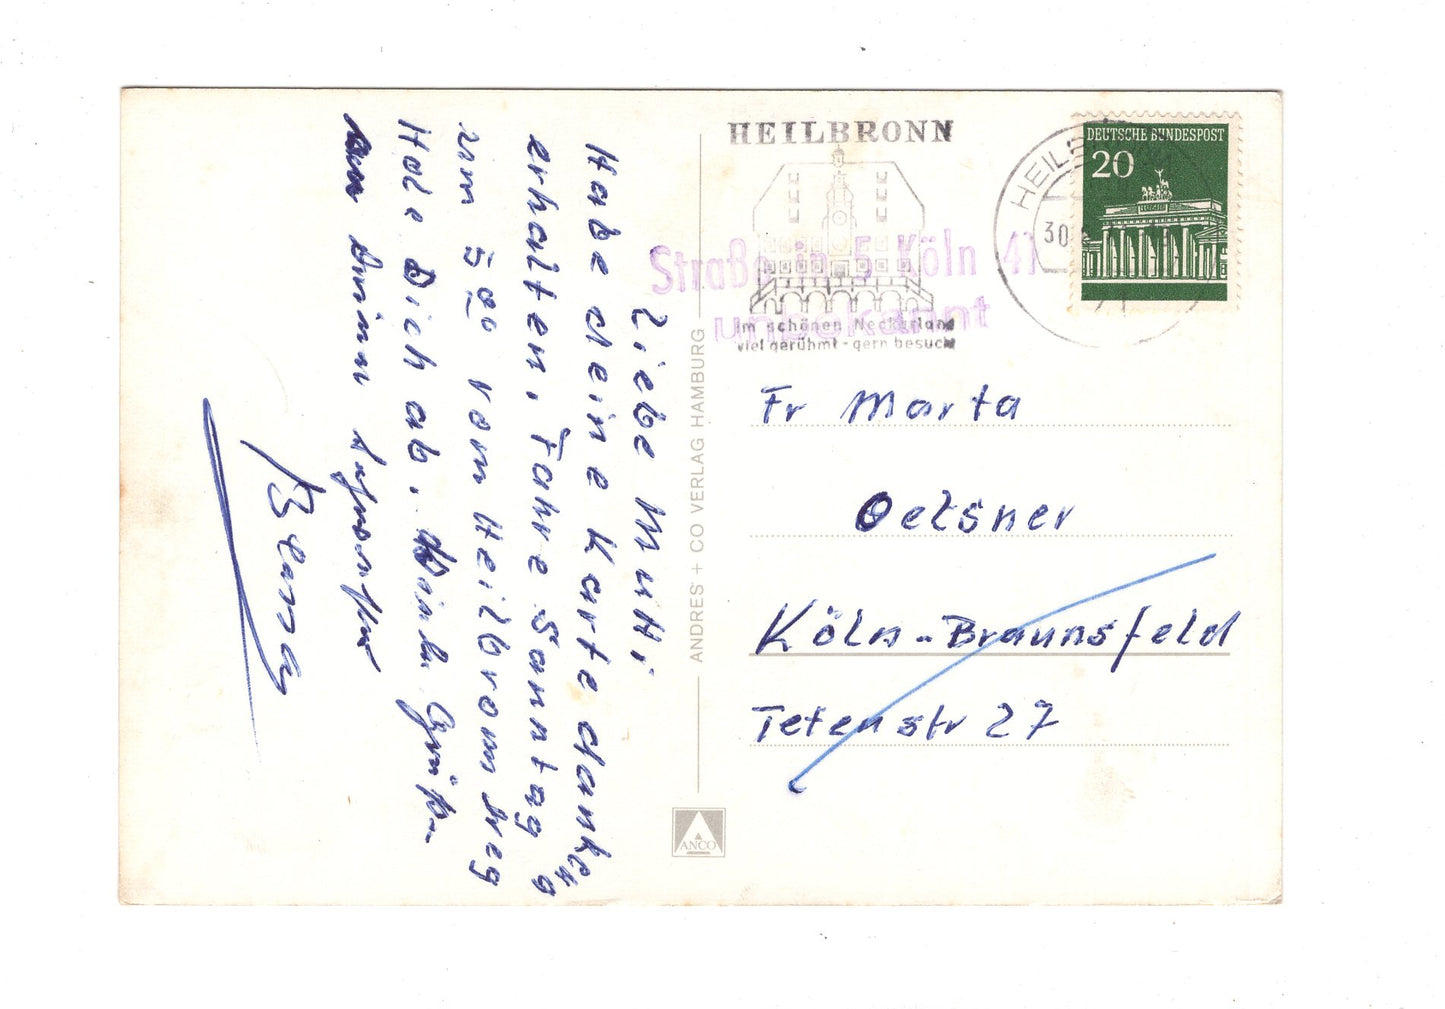 Liebe Mutti
Habe deine Karte dankend
erhalten. Fahre Sonntag
um 5 00 von Heilbronn weg
Hole Dich ab. Grüße
von Deinem
HEILBRONN
im schönen Neckarland
viel gerühmt - gern besucht
Straße in 5 Köln 41
unbekannt
HEILB
30
DEUTSCHE BUNDESPOST
20
Fr Marta
Oelsner
Köln-Braunsfeld
Tetenstr 27
ANDRES + CO VERLAG HAMBURG
ANCO